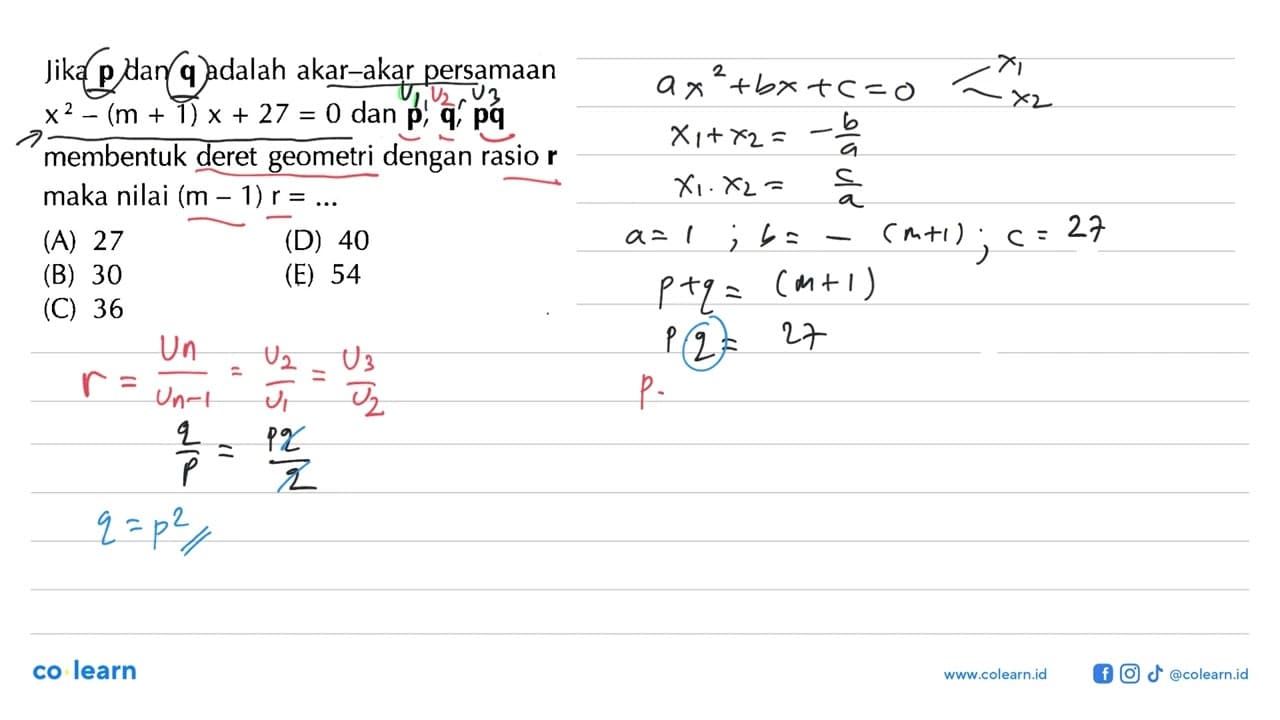 Jika p dan q adalah akar–akar persamaan
U1 U2 U3
x² – (m + 1) x + 27 = 0 dan p, q, pq
membentuk deret geometri dengan rasio r
maka nilai (m – 1) r = ...
(A) 27 (D) 40
(B) 30 (E) 54
(C) 36
r = Un/Un-1 = U2/U1 = U3/U2
q/p = pq/q
q = p²
ax² + bx + c = 0 < x1 x2
x1 + x2 = - b/a
x1 . x2 = c/a
a = 1 ; b = - (m+1) ; c = 27
p + q = (m+1)
p q = 27
p.
co learn
www.colearn.id @colearn.id